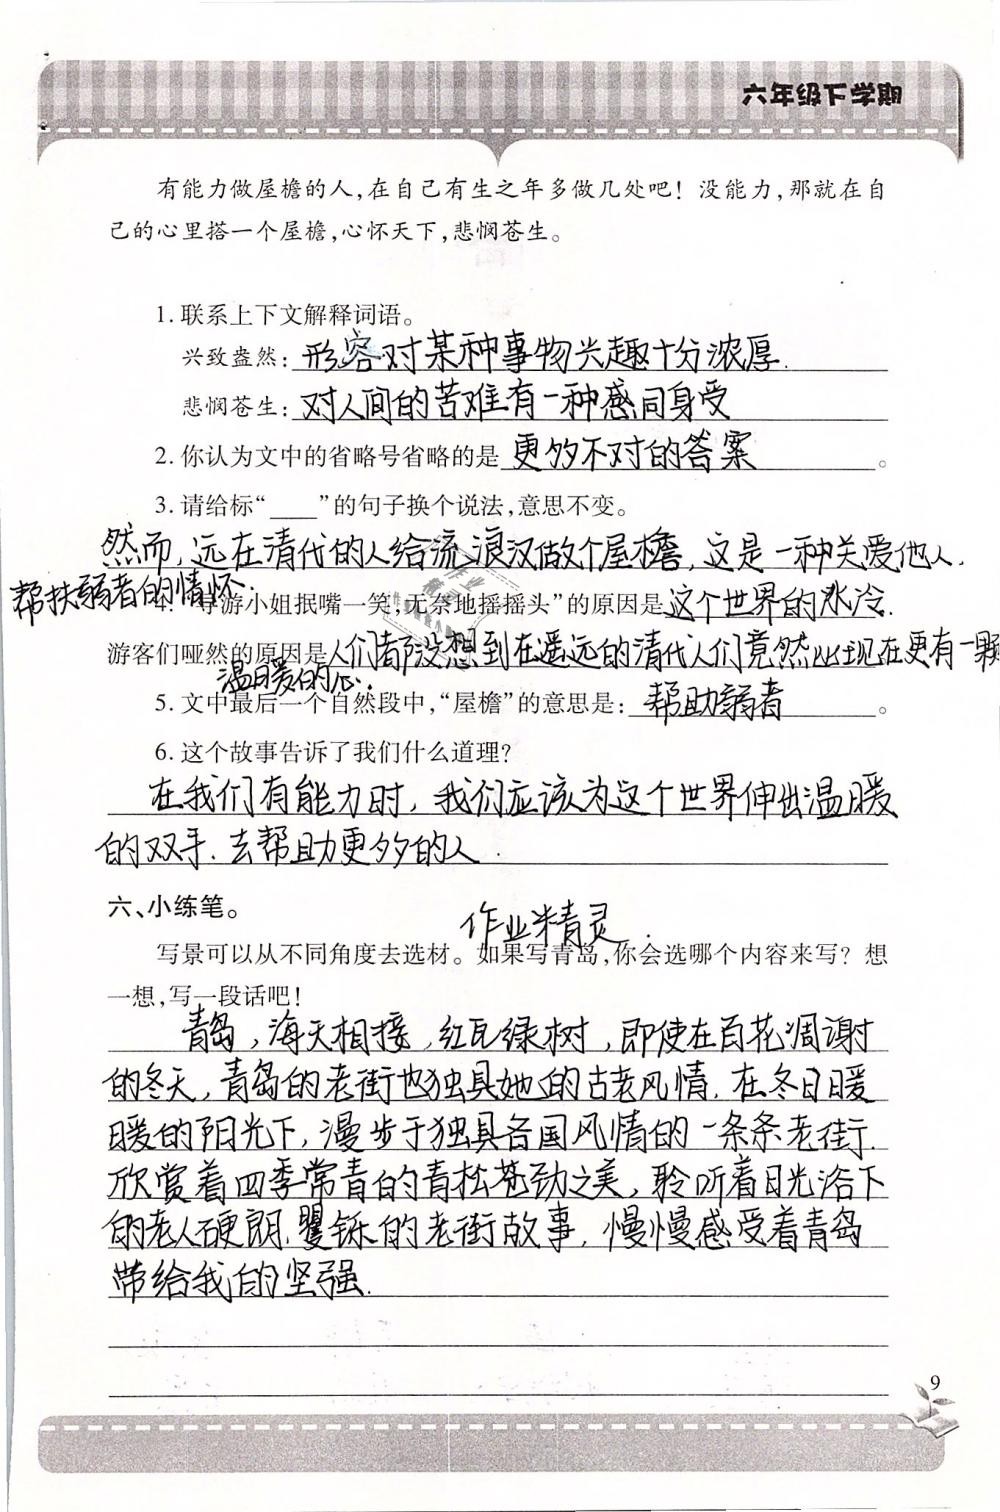 六年级下学期
有能力做屋檐的人,在自己有生之年多做几处吧！没能力,那就在自
己的心里搭一个屋檐,心怀天下,悲悯苍生。
1.联系上下文解释词语。
兴致盎然:形容对某种事物兴趣十分浓厚.
悲悯苍生:对人间的苦难有一种感同身受
2.你认为文中的省略号省略的是 更多不对的答案。
3.请给标“____”的句子换个说法,意思不变。
然而,远在清代的人给流浪汉做个屋檐,这是一种关爱他人,
帮扶弱者的情怀.
4.“导游小姐抿嘴一笑,无奈地摇摇头”的原因是这个世界的冰冷.
游客们哑然的原因是人们都没想到在遥远的清代人们竟然比现在更有一颗
温暖的心.
5.文中最后一个自然段中,“屋檐”的意思是:帮助弱者。
6.这个故事告诉了我们什么道理?
在我们有能力时,我们应该为这个世界伸出温暖
的双手.去帮助更多的人.
六、小练笔。
作业精灵.
写景可以从不同角度去选材。如果写青岛,你会选哪个内容来写?想
一想,写一段话吧!
青岛,海天相接,红瓦绿树,即使在百花凋谢
的冬天,青岛的老街也独具她的古老风情.在冬日暖
暖的阳光下,漫步于独具各国风情的一条条老街.
欣赏着四季常青的青松苍劲之美,聆听着日光浴下
的老人硬朗.矍铄的老街故事.慢慢感受着青岛
带给我的坚强.
9